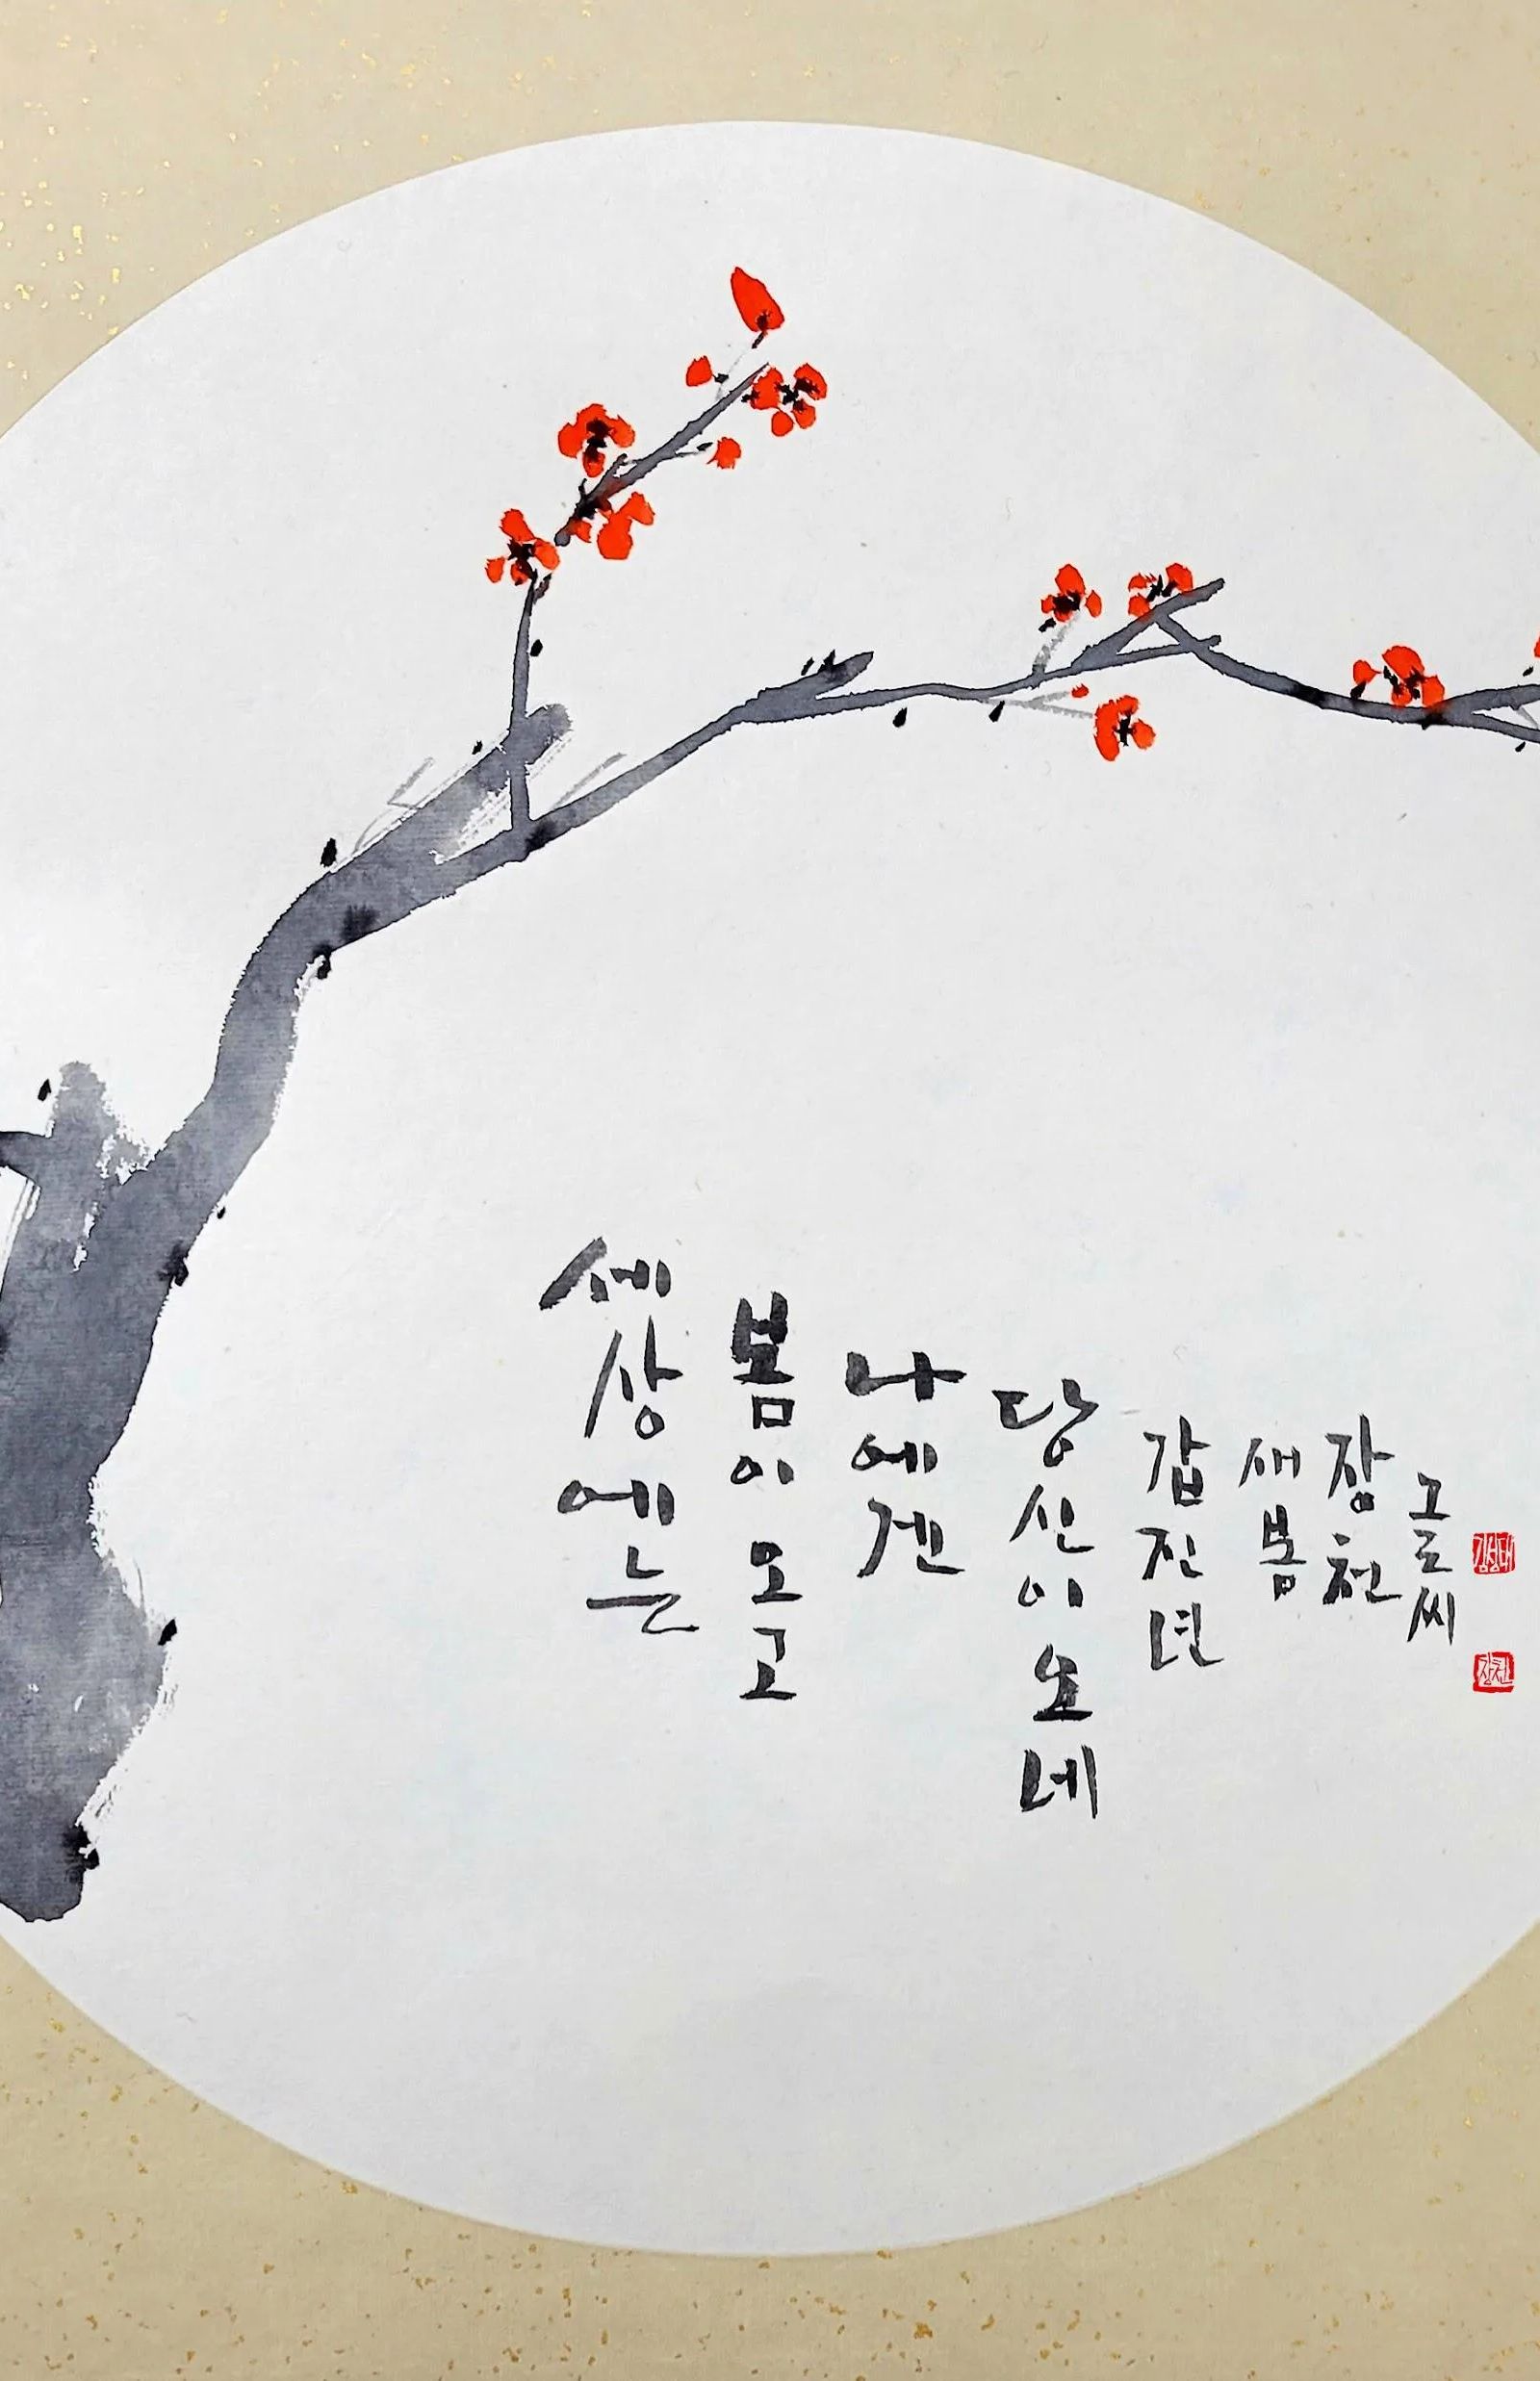 세상에는
봄이 오고
나에겐
당신이 오네
갑진년
새봄
장천
글씨
김성태
장천